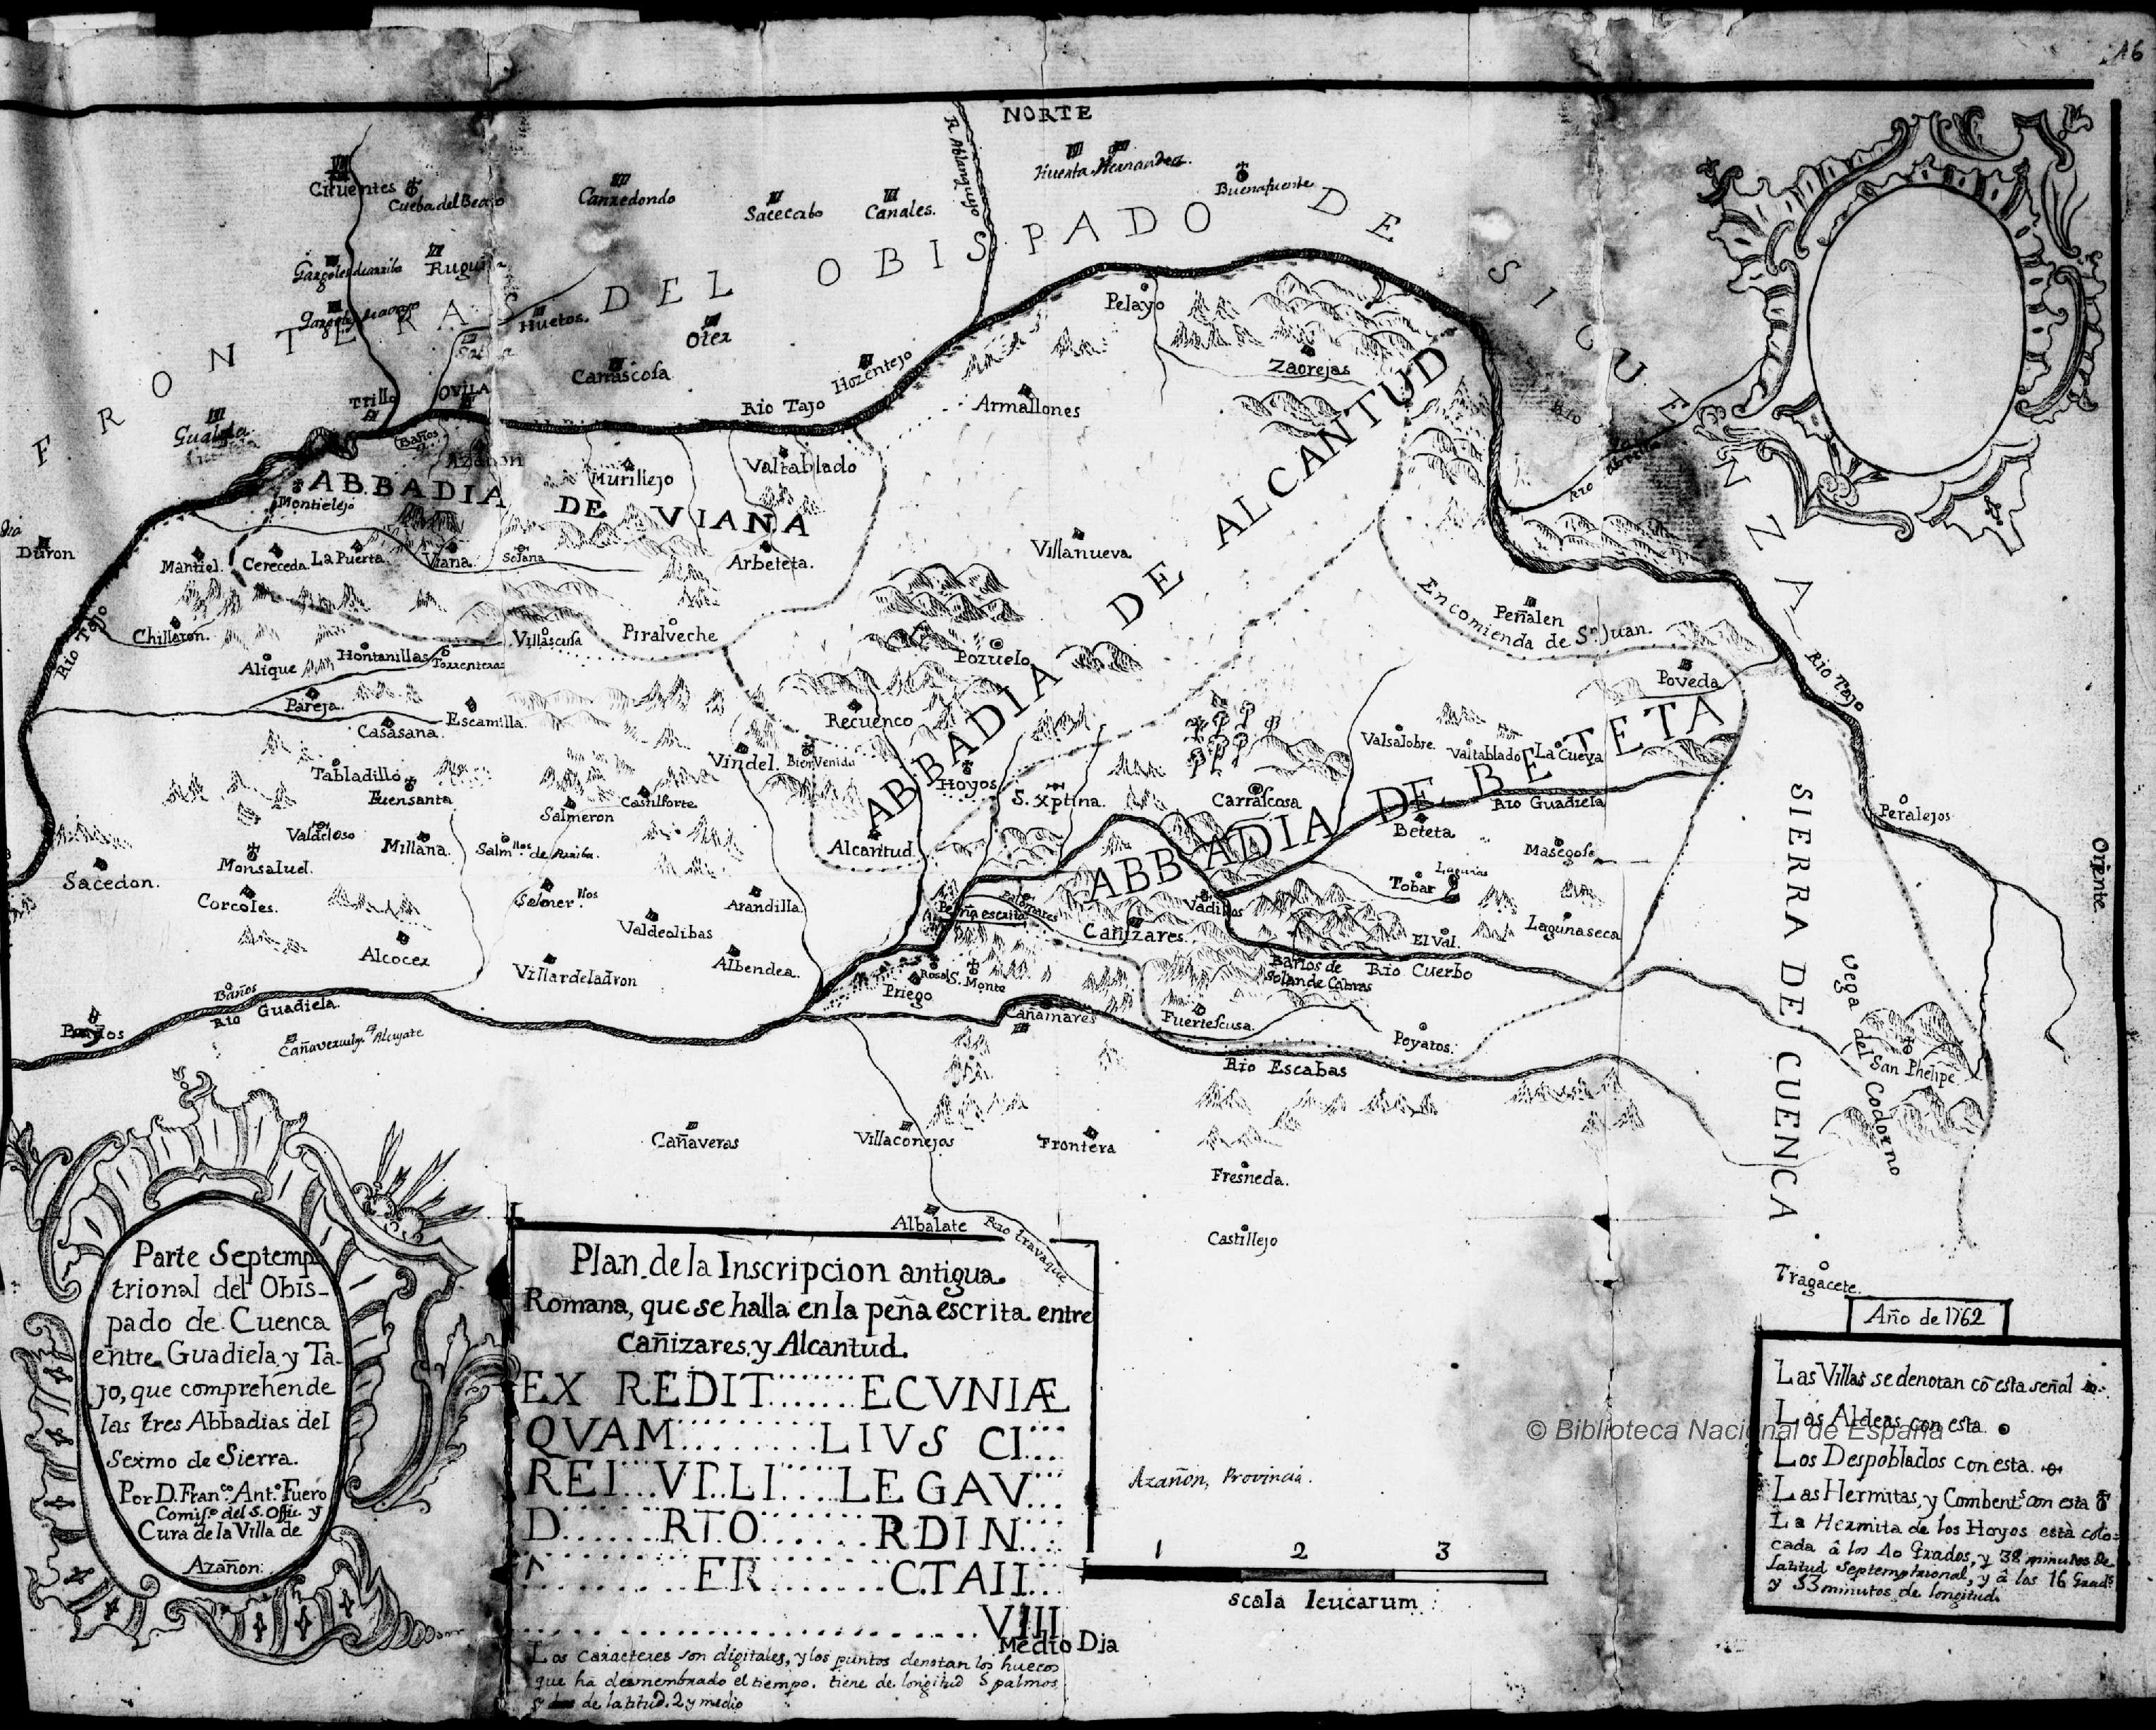 16
NORTE
R. Ablanquejo
Huerta Hernandez.
Buenafuente
Cifuentes
Cueba del Beato
Canredondo
Sacecorbo
Canales.
Gargoles de arriba
Ruguilla
FRONTERAS DEL OBISPADO DE SIGUENZA
Huetos.
Oter
Carrascosa
Hozentejo
Pelayo
Zaorejas
Trillo
OVILA
Rio Tajo
Armallones
Gualda
Baños
Azañon
Murillejo
Valtablado
ABBADIA DE VIANA
Montielejo
Rio
Duron
Mantiel.
Cereceda
La Puerta
Viana
Solana
Arbeteta.
Villanueva
ABBADIA DE ALCANTUD
Encomienda de Sn. Juan.
Peñalen
Rio Tajo
Chilleron.
Villascusa
Piralveche
Alique
Hontanillas
Torrenteras
Pozuelo
Poveda
Rio Tajo
Pareja
Casasana
Escamilla.
Recuenco
Vindel.
BienVenida
Valsalobre.
Valtablado
La Cueva
Tabladillo
Fuensanta
Castilforte
Salmeron
Hoyos
S. Xptina.
Carrascosa
Rio Guadiela
Beteta
ABBADIA DE BETETA
Peralejos
Valdeloso
Millana.
Salmllos de Arriba.
Alcantud
Mascgosa
Monsaluel.
Sacedon.
Corcoles.
Salmerllos
Arandilla
Palomares
Peña escrita
Vadillos
Tobar
Lagunas
Lagunaseca
Valdeolibas
Cañizares
El Val.
Oriente.
Alcocer
Villardeladron
Albendea.
Rosal
S. Monte
Priego
Baños de Solan de Cabras
Rio Cuerbo
SIERRA DE CUENCA
Baños
Rio Guadiela
Alcujate
Cañamares
Fuertescusa.
Poyatos.
Rio Escabas
Vega del Codorno
San Phelipe
Cañaveras
Villaconejos
Frontera
Fresneda.
Albalate
Rio travaque
Castillejo
Tragacete.
Parte Septemp
trional del Obis-
pado de Cuenca
entre Guadiela y Ta-
jo, que comprehende
las tres Abbadias del
Sexmo de Sierra.
Por D. Franco. Anto. Fuero
Comiso. del S. Offic. y
Cura de la Villa de
Azañon.
Plan de la Inscripcion antigua
Romana, que se halla en la peña escrita entre
Cañizares, y Alcantud.
EX REDIT.......ECVNIÆ
QVAM.........LIVS CI...
REI...VTLI....LEGAV...
D......RTO......RDIN....
.........ER.......CTAII...
.........................VIII
Los caracteres son digitales, y los puntos denotan los huecos
que ha desmembrado el tiempo. tiene de longitud 5 palmos
y de latitud. 2 y medio
Medio Dia
Azañon, Provincia.
1 2 3
scala leucarum
Año de 1762
Las Villas se denotan cõ esta señal
Las Aldeas con esta
Los Despoblados con esta
Las Hermitas, y Combents. con esta
La Hermita de los Hoyos està colo-
cada â los 40 Grados, y 38 minutos de
Latitud Septemptrional, y â los 16 Grads.
y 53 minutos de longitud.
© Biblioteca Nacional de España